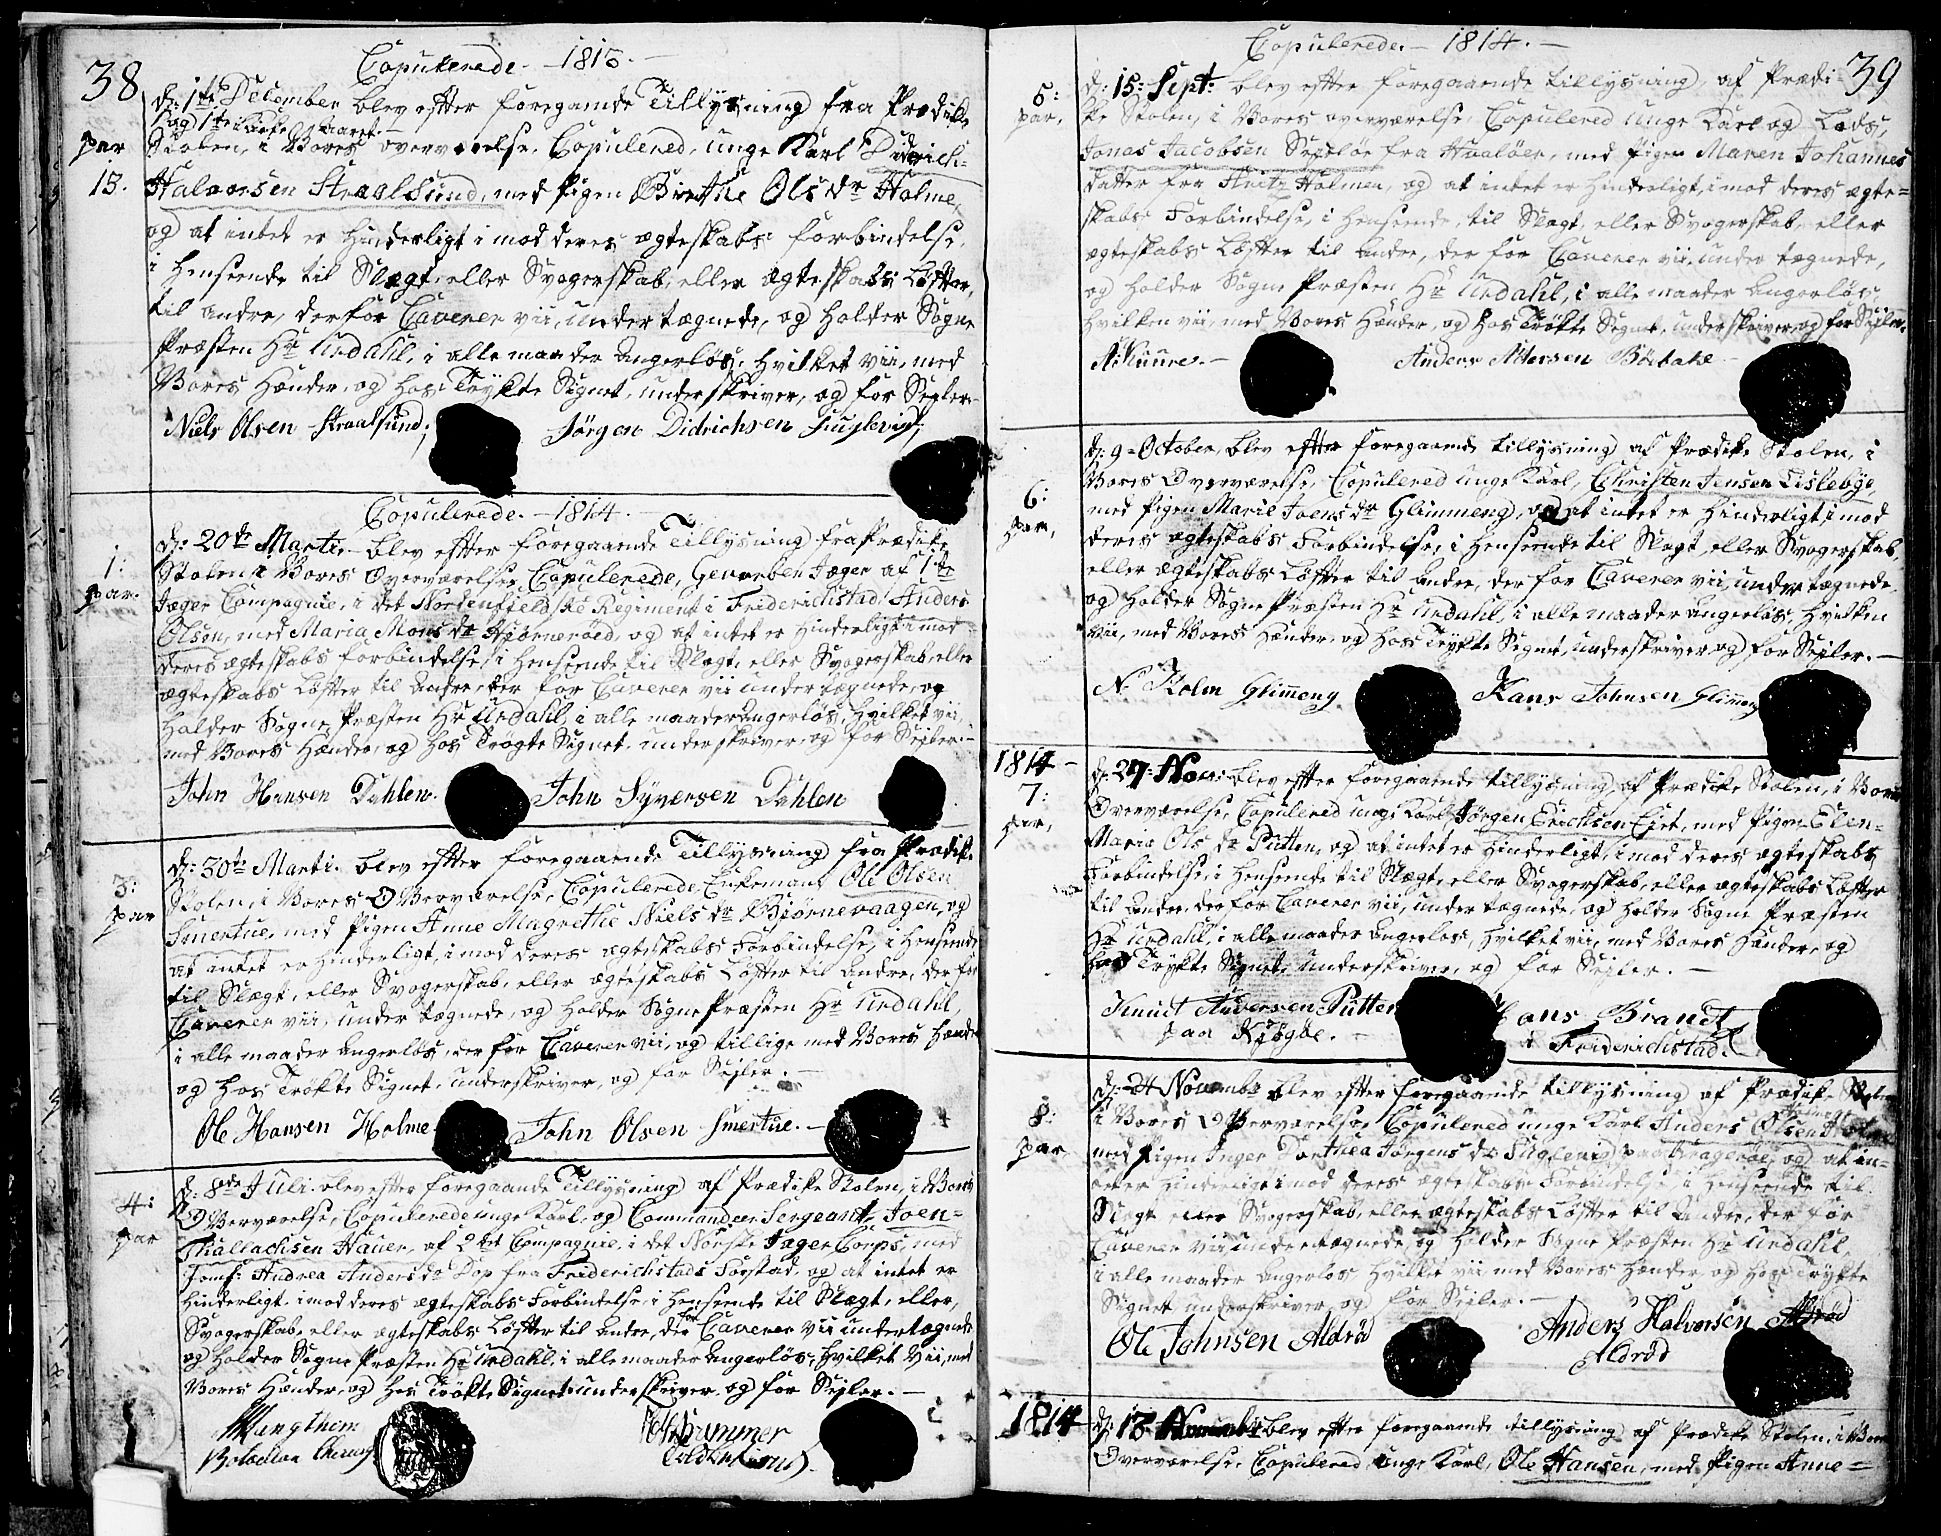 38
Copulerede. - 1813. -
par
13.
d: 1te December blev efter foregaaende Tillysning fra Prædike
og 1te i Kirke Aaret.
Stolen, i Vores overværelse, Copulered, unge Karl Didrich
Halvorsen Straalsund, med Pigen Birthe Olsdr Holme,
og at intet er Hinderligt i mod deres ægteskabs forbindelse,
i Henseende til Slægt, eller Svogerskab, eller Ægteskabs Løfter,
til andre, derfor Caverer vii, under tægnede, og Holder Sogne
Præsten Hr Urdahl, i alle maader Angerløs, Hvilket vii, med
Vores Hænder, og Hos Trykte Signet, underskriver, og for Sejler.
Niels Olsen Straalsund, Jørgen Didrichsen Fuglevig,
Copulerede. - 1814. -
1:
par.
d: 20de Marti. blev efter foregaaende Tillysning fra Prædike
Stolen, i Vores Overværelse, Copulerede, Gevorben Jæger af 1te
Jæger Compagnie, i det Nordenfieldske Regiment i Friderichstad, Anders
Olsen, med Maria Monsdr Hjørnerøed, og at intet er Hinderligt i mod
deres ægteskabs forbindelse, i Henseende til Slægt, eller Svogerskab, eller
ægteskabs Løfter til Andre, der for Caverer vii under tægnede, og
Holder Sogne Præsten Hr Urdahl, i alle maader Angerløs, Hvilket vii,
med Vores Hænder, og Hos Trøgte Signet, underskriver og for Sejler. -
John Hansen Dahlen. John Syversen Dahlen
3:
par
d: 30te Marti. blev efter foregaaende Tillysning fra Prædike
Stolen, i Vores Overværelse, Copulerede, Enkemand Ole Olsen
Smertue, med Pigen Anne Magrethe Nielsdr Bjørnevaagen, og
at intet er Hinderligt, i mod deres ægteskabs Forbindelse, i Henseende
til Slægt, eller Svogerskab, eller ægteskabs Løfter til Andre, der for
Caverer vii, under tægnede, og Holder Sogne Præsten Hr Urdahl,
i alle maader Angerløs, der for Caverer vii, og tillige med Vores Hænder
og Hos Trøkte Signet, underskriver, og for Sejler. -
Ole Hansen Holme. John Olsen Smertue. -
4:
par
d: 8de Juli. blev efter foregaaende Tillysning af Prædike Stolen, i Vores
Overværelse, Copulerede unge Karl, og Commandeer Sergeant, Joen
Thallachsen Hauer, af 2det Compagnie, i det Norske Jæger Corps, med
Jomf: Andrea Andersdr Dop fra Friderichstads Forstad, og at intet er
Hinderligt i mod deres ægteskabs Forbindelse, i Henseende til Slægt, eller,
Svogerskab, eller ægteskabs Løfter til Andre, der for Caverer vii undertægnede
og Holder Sogne Præsten Hr Urdahl, i alle maader Angerløs, Hvilket Vii, med
Vores Hænder, og Hos Trøkte Signet underskriver og for Sejler. -
39
Copulerede. - 1814. -
5:
par.
d: 15: Sept: blev efter foregaaende tillysning, af Prædi-
ke Stolen, i Vores overværelse, Copulered unge Karl og Lods,
Jonas Jacobsen Sejløe fra Hvaløer, med Pigen Maren Johannes
datter fra Holmen, og at intet er Hinderligt, i mod deres ægte=
skabs Forbindelse, i Henseende, til Slægt, eller Svogerskab, eller
ægteskabs Løfter til Andre, der for Caverer vii, under tægnede,
og Holder Sogne Præsten Hr Urdahl, i alle maader Angerløs,
Hvilken vii, med Vores Hænder, og Hos Trøkte Segnet, underskriver, og for Sejler.
Anders
6:
par,
d: 9 October, blev efter foregaaende tillysning af Prædike Stolen, i
Vores Overværelse, Copulered unge Karl, Christen Jensen Tislebye,
med Pigen Marie Joensdr Glimmeng, og at intet er Hinderligt i mod
deres ægteskabs Forbindelse, i Henseende til Slægt, eller Svogerskab,
eller Ægteskabs Løfter til Andre, der for Caverer vii, under tægnede,
og Holder Sogne Præsten Hr Urdahl, i alle maader Angerløs, Hvilken
vii, med Vores Hænder og Hos Trykte Segnet, underskriver og for Sejler. -
N Holm Glimeng Hans Johnsen Glimeng
1814 -
7:
par,
d: 27: Nov: blev efter foregaaende tillysning af Prædike Stolen, i Vores
Overværelse, Copulered unge Karl Jørgen Erichsen Eiet, med Pigen Elen=
Maria Olsdr Putten, og at intet er Hinderligt, i mod deres ægteskabs
Forbindelse, i Henseende til Slægt, eller Svogerskab, eller ægteskabs Løfter
til Andre, der for Caverer vii, under tægnede, og Holder Sogne Præsten
Hr Urdahl, i alle maader Angerløs, Hvilket vii, med Vores Hænder, og
Hos Trykte Signet, underskriver, og for Sejler. -
Knudt Putten Hans Brandt
paa i Friderichstad.
8:
par
d: 24 Novembr blev efter foregaaende tillysning af Prædike Stolen
i Vores Overværelse, Copulered unge Karl Anders Olsen
med Pigen Inger Dorthea Jørgensdr Fuglevig paa Kragerøe, og at in-
tet er Hinderligt i mod deres ægteskabs Forbindelse, i Henseende til
Slægt eller Svogerskab, eller ægteskabs Løfter til Andre, der for
Caverer vii, undertægnede, og Holder Sogne Præsten Hr Urdahl,
i alle maader Angerløs, Hvilket vii, med Vores Hænder, og Hos Trykte
Signet, underskriver, og for Sejler. -
Ole Johnsen Aldrød Anders Halvorsen
Aldrød
1814
d: 13 Novembr blev efter foregaaende tillysning af Prædike Stolen, i Vores
Overværelse, Copulered, unge Karl, Ole Hansen, med Pigen Anne=